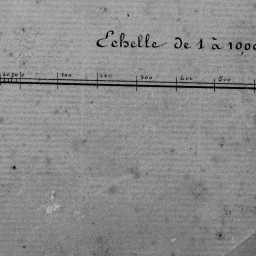 Echelle de 1 à 1000
100 200 300 400 500